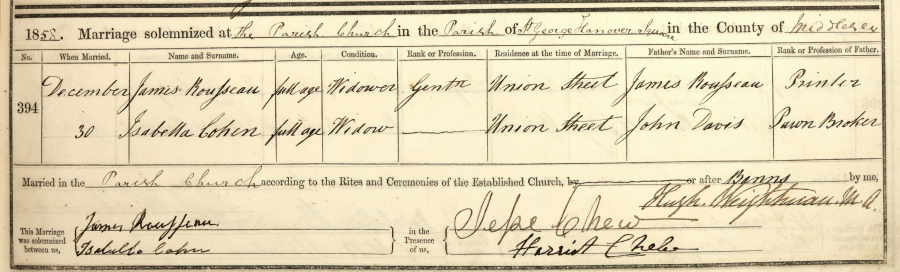 1858. Marriage solemnized at the Parish Church in the Parish of St George Hanover Square in the County of Middlesex
No. When Married. Name and Surname. Age. Condition. Rank or Profession. Residence at the time of Marriage. Father's Name and Surname. Rank or Profession of Father.
394 December James Rousseau full age Widower Gentn Union Street James Rousseau Printer
30 Isabella Cohen full age Widow Union Street John Davis Pawn Broker
Married in the Parish Church according to the Rites and Ceremonies of the Established Church, by or after Banns by me,
Hugh Weightman M.A.
This Marriage was solemnized between us, James Rousseau in the Presence of us, Jesse Chew
Isabella Cohen Harriet